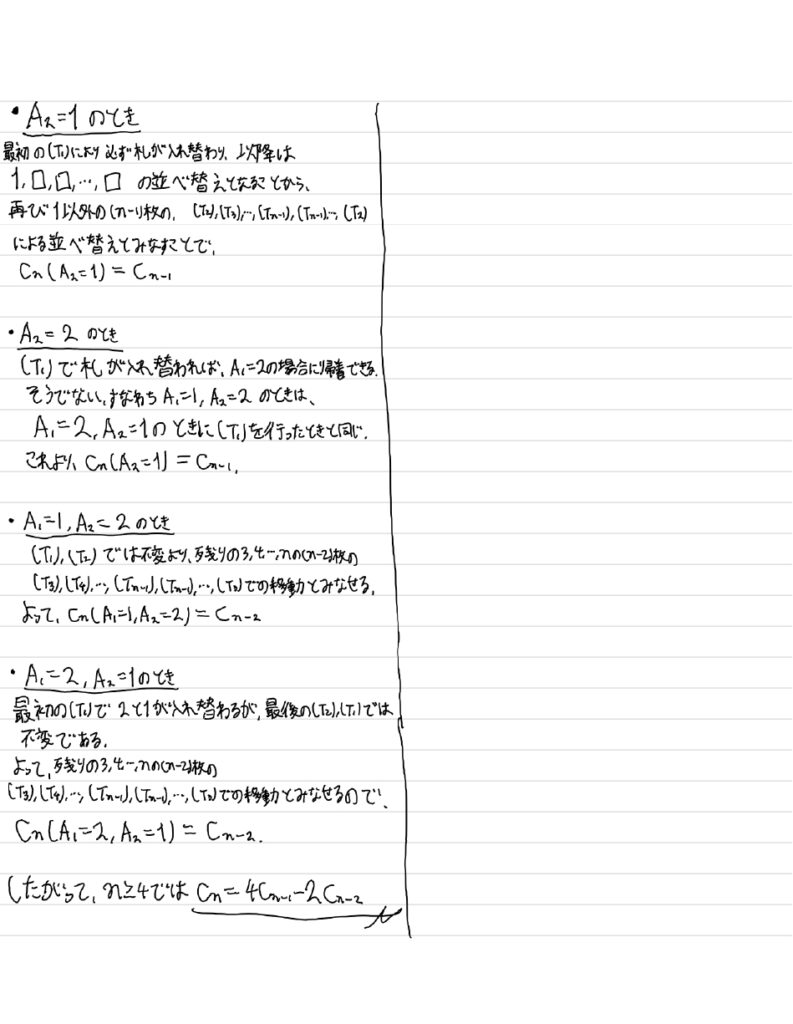 ・A₂=1 のとき
最初の(T₁)により必ず札が入れ替わり、以降は
1,□,□,…,□ の並べ替えとなることから、
再び1以外の(n-1)枚の、(T₂),(T₃),…,(Tn-1),(Tn-1),…,(T₂)
による並べ替えとみなすことで、
Cn(A₂=1)=Cn-1
・A₂=2 のとき
(T₁)で札が入れ替われば、A₁=2の場合に帰着できる.
そうでない、すなわち A₁=1, A₂=2 のときは、
A₁=2, A₂=1のときに(T₁)を行ったときと同じ.
これより、Cn(A₂=1)=Cn-1.
・A₁=1, A₂=2 のとき
(T₁),(T₂)では不変より、残りの3,4…,nの(n-2)枚の
(T₃),(T₄),…,(Tn-1),(Tn-1),…,(T₃)での移動とみなせる.
よって、Cn(A₁=1,A₂=2)=Cn-2
・A₁=2, A₂=1のとき
最初の(T₁)で2と1が入れ替わるが、最後の(T₂),(T₁)では
不変である.
よって、残りの3,4…,nの(n-2)枚の
(T₃),(T₄),…,(Tn-1),(Tn-1),…,(T₃)での移動とみなせるので、
Cn(A₁=2, A₂=1)=Cn-2.
したがって、n≥4では Cn=4Cn-1-2Cn-2